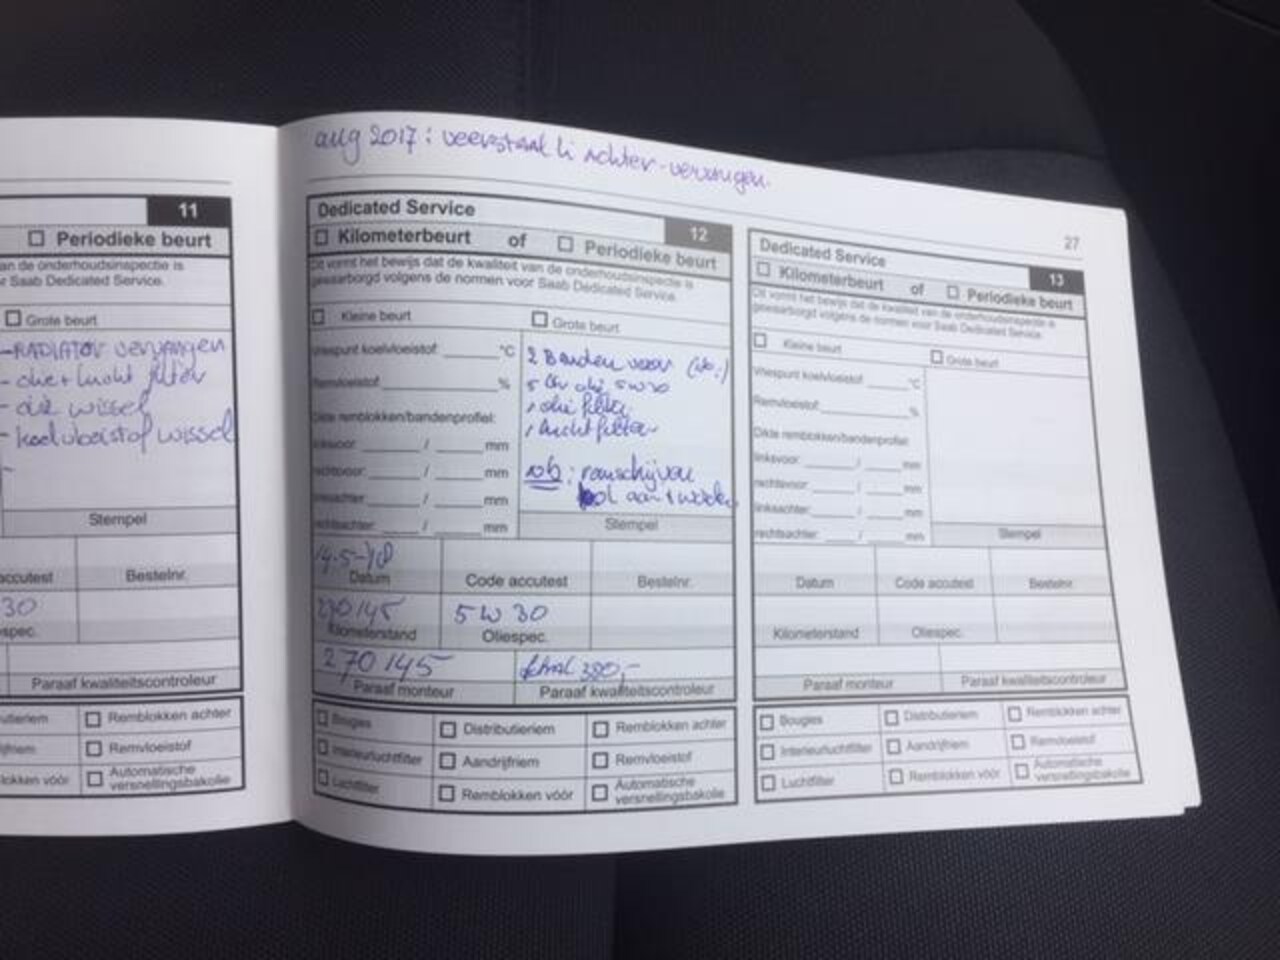 aug 2017: veerstaal li achter vervangen.
27
11
Periodieke beurt
an de onderhoudsinspectie is
r Saab Dedicated Service.
Grote beurt
- RADIATOR vervangen
- olie + lucht filter
- olie wissel
- koelvloeistof wissel
-
Stempel
accutest
Bestelnr.
30
spec.
Paraaf kwaliteitscontroleur
Remblokken achter
Remvloeistof
lokken vóór
Automatische
versnellingsbakolie
Dedicated Service
12
Kilometerbeurt of Periodieke beurt
Dit vormt het bewijs dat de kwaliteit van de onderhoudsinspectie is
gewaarborgd volgens de normen voor Saab Dedicated Service.
Kleine beurt
Grote beurt
Vriespunt koelvloeistof: °C
Remvloeistof: %
Dikte remblokken/bandenprofiel:
linksvoor: / mm
rechtsvoor: / mm
linksachter: / mm
rechtsachter: / mm
2 Banden voor
5 olie 5W30
1 olie filter
1 luchtfilter
: remschijven
aan
Stempel
14-5-18
Datum
Code accutest
Bestelnr.
270145
5W30
Kilometerstand
Oliespec.
270145
380,-
Paraaf monteur
Paraaf kwaliteitscontroleur
Bougies
Distributieriem
Remblokken achter
Interieurluchtfilter
Aandrijfriem
Remvloeistof
Luchtfilter
Remblokken vóór
Automatische
versnellingsbakolie
Dedicated Service
13
Kilometerbeurt of Periodieke beurt
Dit vormt het bewijs dat de kwaliteit van de onderhoudsinspectie is
gewaarborgd volgens de normen voor Saab Dedicated Service.
Kleine beurt
Grote beurt
Vriespunt koelvloeistof: °C
Remvloeistof: %
Dikte remblokken/bandenprofiel:
linksvoor: / mm
rechtsvoor: / mm
linksachter: / mm
rechtsachter: / mm
Stempel
Datum
Code accutest
Bestelnr.
Kilometerstand
Oliespec.
Paraaf monteur
Paraaf kwaliteitscontroleur
Bougies
Distributieriem
Remblokken achter
Interieurluchtfilter
Aandrijfriem
Remvloeistof
Luchtfilter
Remblokken vóór
Automatische
versnellingsbakolie